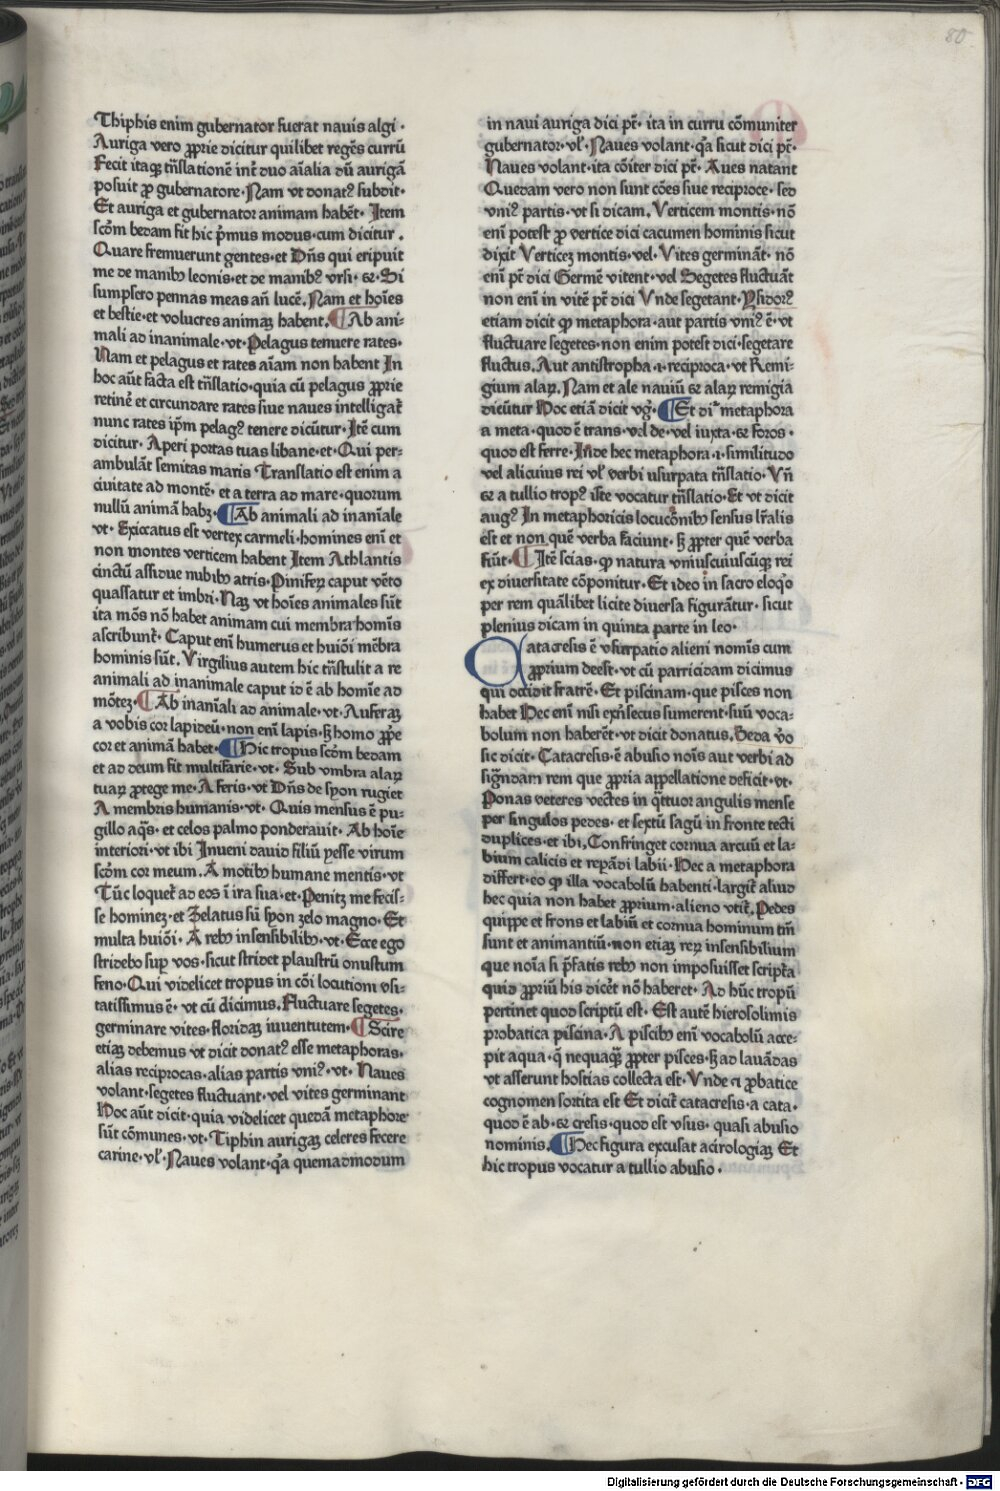 80
Thiphis enim gubernator fuerat nauis algi ·
Auriga vero ꝓprie dicitur quilibet regēs currū
Fecit itaqꝫ trāslationē int̄ duo aīalia dū aurigā
posuit ꝓ gubernatore · Nam vt donatꝰ subdit ·
Et auriga et gubernator animam habēt · Item
scōm bedam fit hic pͥmus modus · cum dicitur .
Quare fremuerunt gentes · et Dn̄s qui eripuit
me de manibꝫ leonis · et de manibꝫ vrsi · ⁊c · Si
sumpsero pennas meas an̄ lucē . Nam et hoīes
et bestie · et volucres animaꝫ habent . ¶ Ab ani-
mali ad inanimale · vt · Pelagus tenuere rates ·
Nam et pelagus et rates aīam non habent In
hoc aūt facta est trāslatio · quia cū pelagus ꝓprie
retinē et circundare rates siue naues intelligat̄
nunc rates ip̄m pelagꝰ tenere dicūtur · Itē cum
dicitur . Aperi portas tuas libane · et · Qui per-
ambulāt semitas maris Translatio est enim a
ciuitate ad montē · et a terra ad mare · quorum
nullū animā habꝫ . ¶ Ab animali ad inanīale
vt · Exiccatus est vertex carmeli · homines enī et
non montes verticem habent Item Athlantis
cinctū assidue nubibꝫ atris · Piniferꝫ caput vēto
quassatur et imbri · Naꝫ vt hoīes animales sūt
ita mōs nō habet animam cui membra homīs
ascribunt̄ · Caput enī humerus et huiōi mēbra
hominis sūt . Virgilius autem hic trāstulit a re
animali ad inanimale caput id ē ab homīe ad
mōteꝫ · ¶ Ab inanīali ad animale · vt · Auferaꝫ
a vobis cor lapideū · non enī lapis · sꝫ homo ꝓpe
cor et animā habet · ¶ Hic tropus scōm bedam
et ad deum fit multifarie · vt · Sub vmbra alaꝝ
tuaꝝ ꝓtege me · A feris · vt Dn̄s de syon rugiet
A membris humanis · vt · Quis mensus ē pu-
gillo aq̄s · et celos palmo ponderauit · Ab hoīe
interiori · vt ibi Inueni dauid filiū yesse virum
scōm cor meum . A motibꝫ humane mentis · vt
Tūc loquet̄ ad eos ī ira sua · et · Penitꝫ me fecis-
se homineꝫ · et Zelatus sū syon zelo magno · Et
multa huiōi · A rebꝫ insensibilibꝫ · vt · Ecce ego
stridebo suꝑ vos · sicut stridet plaustrū onustum
feno · Qui videlicet tropus in cōi locutioni vsi-
tatissimus ē · vt cū dicimus . Fluctuare segetes ·
germinare vites · floridaꝫ iuuentutem · ¶ Scire
etiaꝫ debemus vt dicit donatꝰ esse metaphoras ·
alias reciprocas · alias partis vniꝰ · vt · Naues
volant · segetes fluctuant · vel vites germinant
Hoc aūt dicit · quia videlicet quedā metaphore
sūt cōmunes · vt · Tiphin aurigaꝫ celeres fecere
carine · vl̄ · Naues volant · q̄a quemadmodum
in naui auriga dici pt̄ · ita in curru cōmuniter
gubernator · vl̄ · Naues volant · q̄a sicut dici pt̄ ·
Naues volant · ita cōiter dici pt̄ · Aues natant
Quedam vero non sunt cōes siue reciproce · sed
vniꝰ partis · vt si dicam . Verticem montis · nō
enī potest ꝓ vertice dici cacumen hominis sicut
dixit Verticeꝫ montis · vel · Vites germināt · nō
enī pt̄ dici Germē vitent · vel Segetes fluctuāt
non enī in vitē pt̄ dici Vnde segetant · Ysidorꝰ
etiam dicit qꝫ metaphora · aut partis vniꝰ ē · vt
fluctuare segetes · non enim potest dici · segetare
fluctus . Aut antistropha · i · reciproca · vt Remi-
gium alaꝝ . Nam et ale nauiū ⁊ alaꝝ remigia
dicūtur Hoc etiā dicit vgꝰ . ¶ Et dr̄ metaphora
a meta · quod ē trans · vel de · vel iuxta · ⁊ foros ·
quod est ferre · Inde hec metaphora · i · similitudo
vel alicuius rei vl̄ verbi vsurpata trāslatio · Vn̄
⁊ a tullio tropꝰ iste vocatur trāslatio · Et vt dicit
augꝰ In metaphoricis locucōnibꝫ sensus lr̄alis
est et non quē verba faciunt · sꝫ ꝓpter quē verba
fiūt · ¶ Itē scias · qꝫ natura vniuscuiuscūqꝫ rei
ex diuersitate cōponitur · Et ideo in sacro eloqͦo
per rem quālibet licite diuersa figurātur · sicut
plenius dicam in quinta parte in leo ·
Catacresis ē vsurpatio alieni nomīs cum
ꝓprium deest · vt cū parricidam dicimus
qui occidit fratrē · Et piscinam · que pisces non
habet Hec enī nisi ext̄secus sumerent · suū voca-
bolum non haberēt · vt dicit donatus . Beda v̄o
sic dicit · Catacresis · ē abusio noīs aut verbi ad
sig̅ndam rem que ꝓpria appellatione deficit · vt ·
Ponas veteres vectes in q̄ttuor angulis mense
per singulos pedes · et sextū sagū in fronte tecti
duplices · et ibi , Confringet cornua arcuū et la-
bium calicis et repādi labii · Hec a metaphora
differt · eo qꝫ illa vocabolū habenti · largit̄ aliud
hec quia non habet ꝓprium · alieno vtit̄ . Pedes
quippe et frons et labiū et cornua hominum tm̄
sunt et animantiū · non etiaꝫ reꝝ insensibilium
que noīa si p̄fatis rebꝫ non imposuisset script̄a
quid ꝓpriū his dicēt nō haberet · Ad hūc tropū
pertinet quod scriptū est · Est autē hierosolimis
probatica piscina · A piscibꝫ enī vocabolū acce-
pit aqua · q̄ nequaqͣꝫ ꝓpter pisces · sꝫ ad lauādas
vt asserunt hostias collecta est · Vnde ⁊ ꝓbatice
cognomen sortita est Et dicit̄ catacresis · a cata ·
quod ē ab · ⁊ cresis · quod est vsus · quasi abusio
nominis . ¶ Hec figura excusat acirologiaꝫ Et
hic tropus vocatur a tullio abusio ·
Digitalisierung gefördert durch die Deutsche Forschungsgemeinschaft · DFG